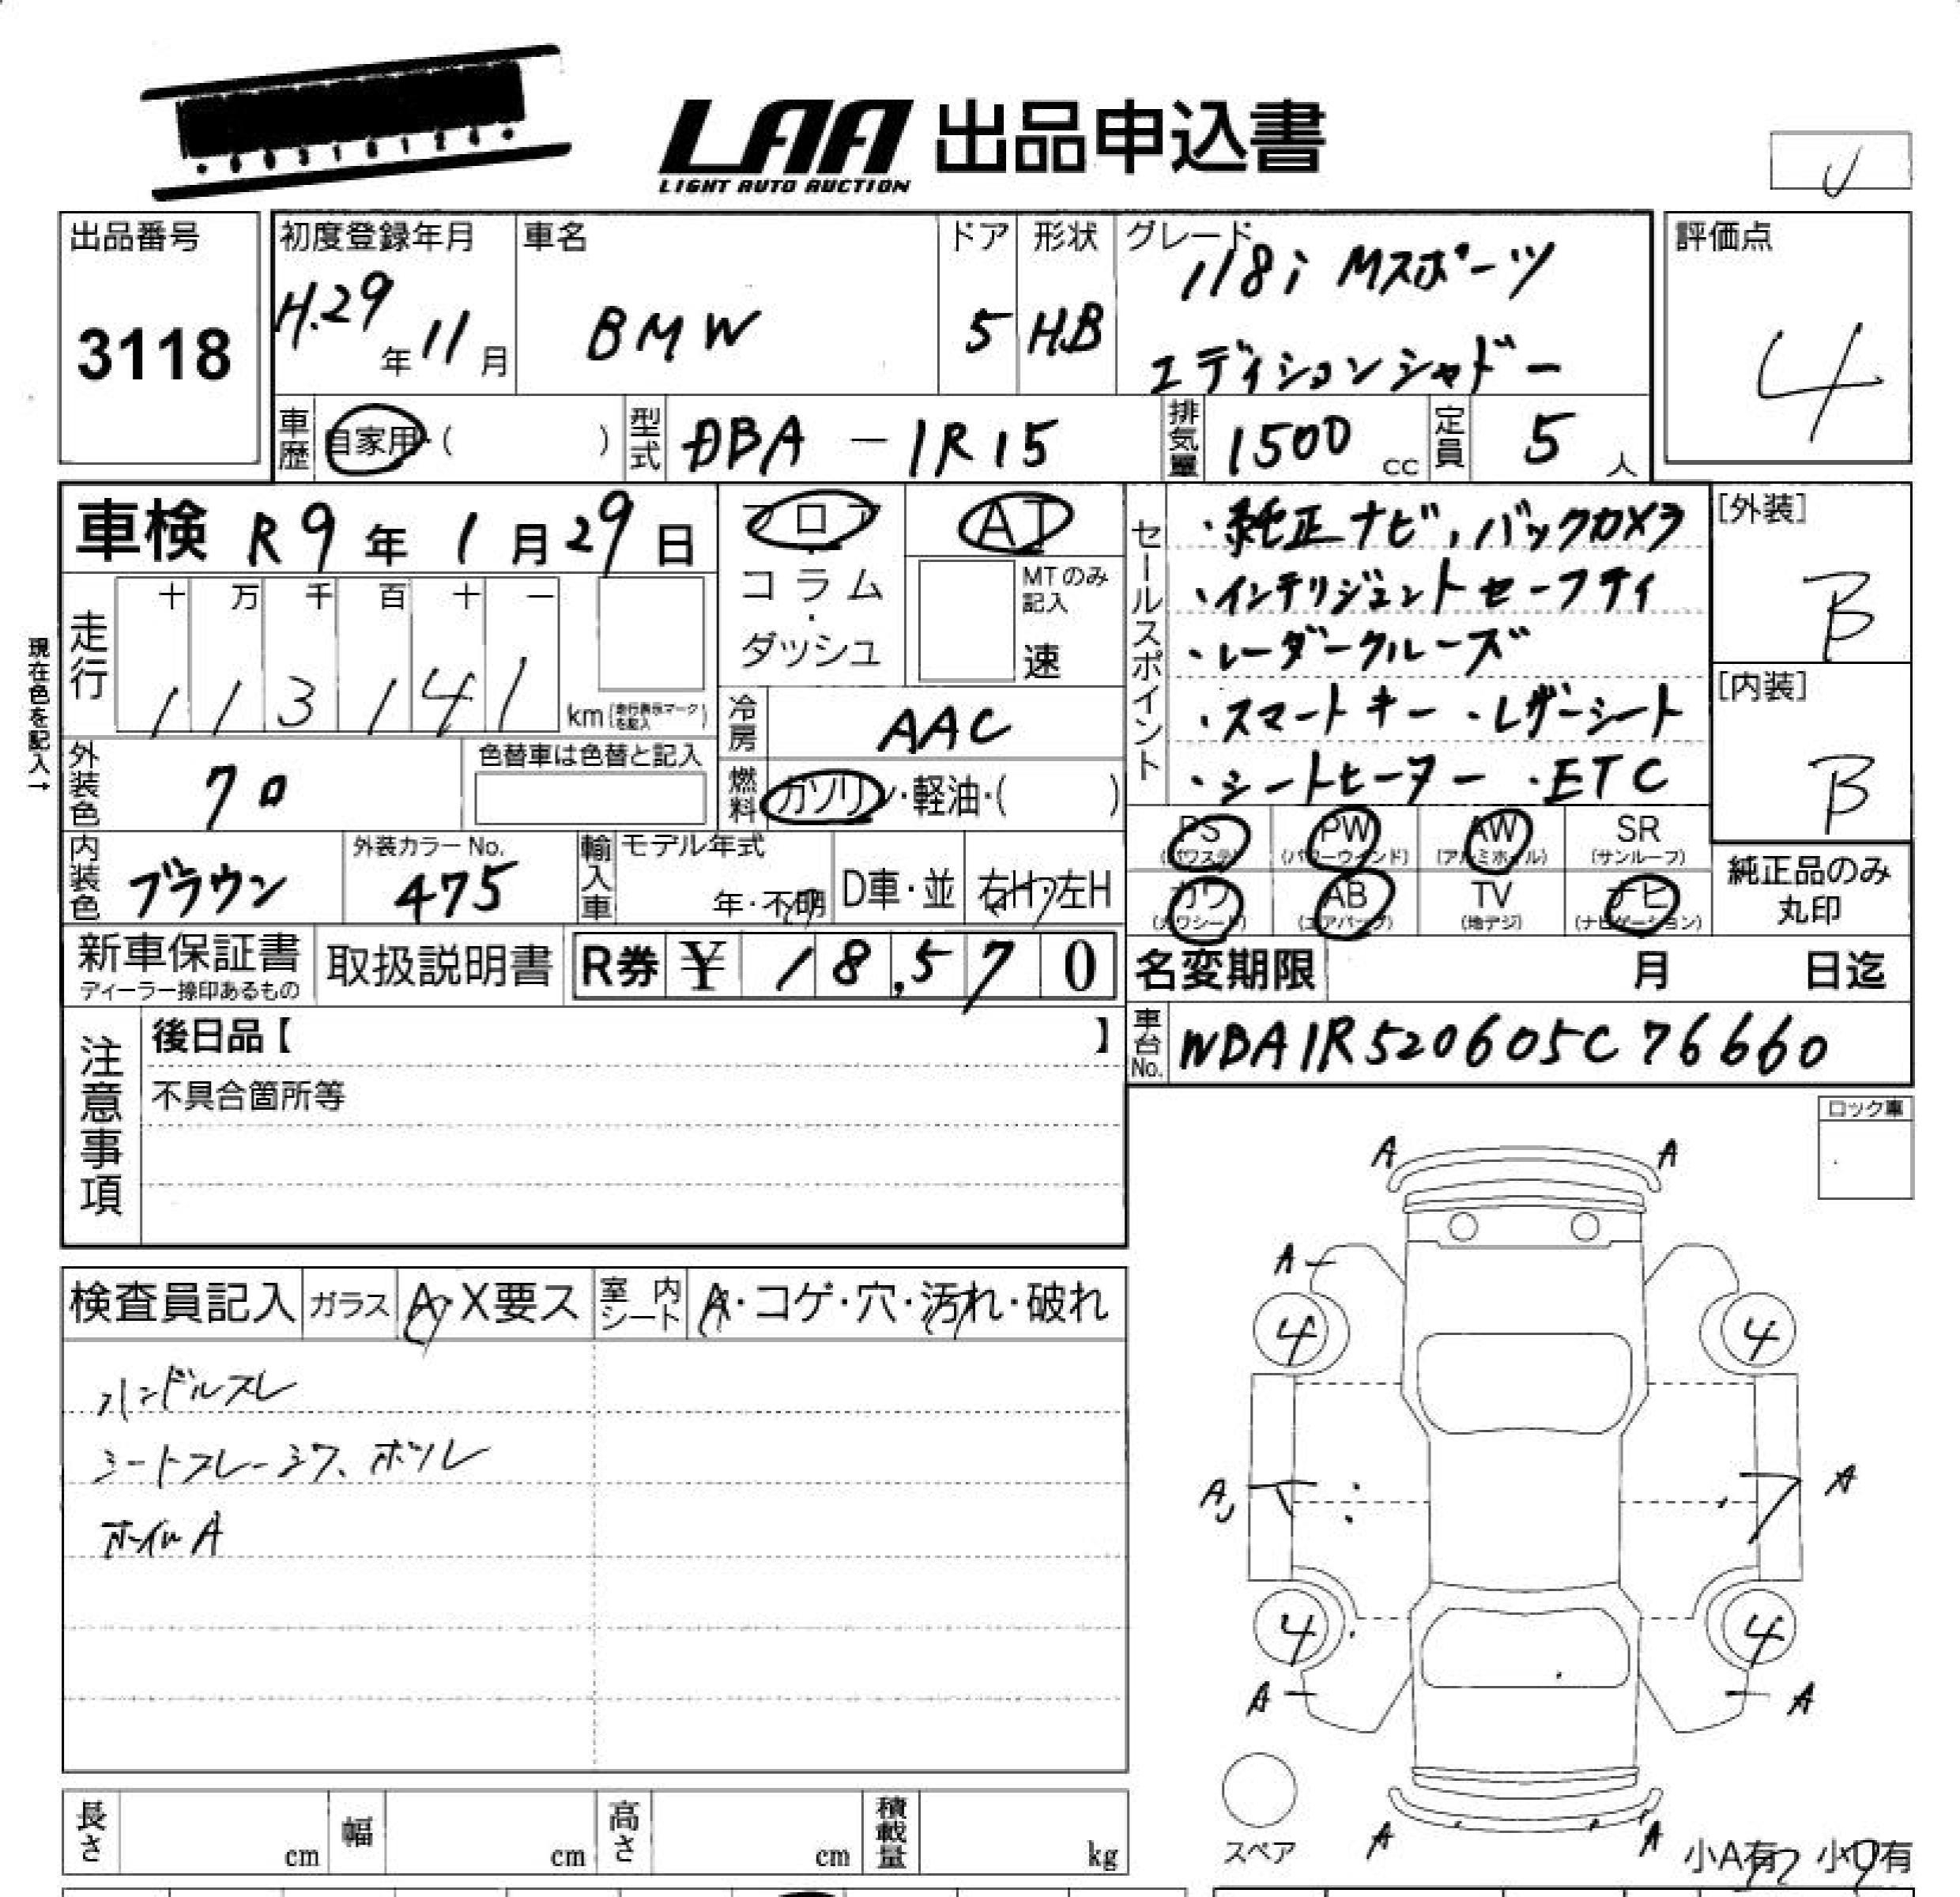 LAA 出品申込書
LIGHT AUTO AUCTION
出品番号
3118
初度登録年月
H.29年11月
車名
BMW
ドア
5
形状
H.B
グレード
118i Mスポーツ
エディションシャドー
評価点
4
車歴
自家用・( )
型式
DBA-1R15
排気量
1500 cc
定員
5人
車検 R9年1月29日
フロア・コラム・ダッシュ
AT
MTのみ記入
速
セールスポイント
・純正ナビ、バックカメラ
・インテリジェントセーフティ
・レーダークルーズ
・スマートキー ・レザーシート
・シートヒーター ・ETC
[外装]
B
[内装]
B
現在色を記入→
走行
十 万 千 百 十 一
1 1 3 1 4 1
km(走行表示マークを記入)
冷房
AAC
外装色
クロ
色替車は色替と記入
燃料
ガソリン・軽油・( )
PS (パワステ)
PW (パワーウインド)
AW (アルミホイル)
SR (サンルーフ)
カワ (カワシート)
AB (エアバッグ)
TV (地デジ)
ナビ (ナビゲーション)
純正品のみ
丸印
内装色
ブラウン
外装カラーNo.
475
輸入車
モデル年式
年・不明
D車・並
右H・左H
新車保証書
ディーラー捺印あるもの
取扱説明書
R券 ¥ 18,570
名変期限 月 日迄
車台No.
WBA1R520605C76660
注意事項
後日品【 】
不具合箇所等
ロック車
検査員記入
ガラス
A・X要ス
室内シート
A・コゲ・穴・汚れ・破れ
ハンドルスレ
シートスレ・シワ、ボツレ
ホイルA
A A
A
4 4
A A
4 4
A A
スペア
A A
小A有 小U有
長さ cm
幅 cm
高さ cm
積載量 kg